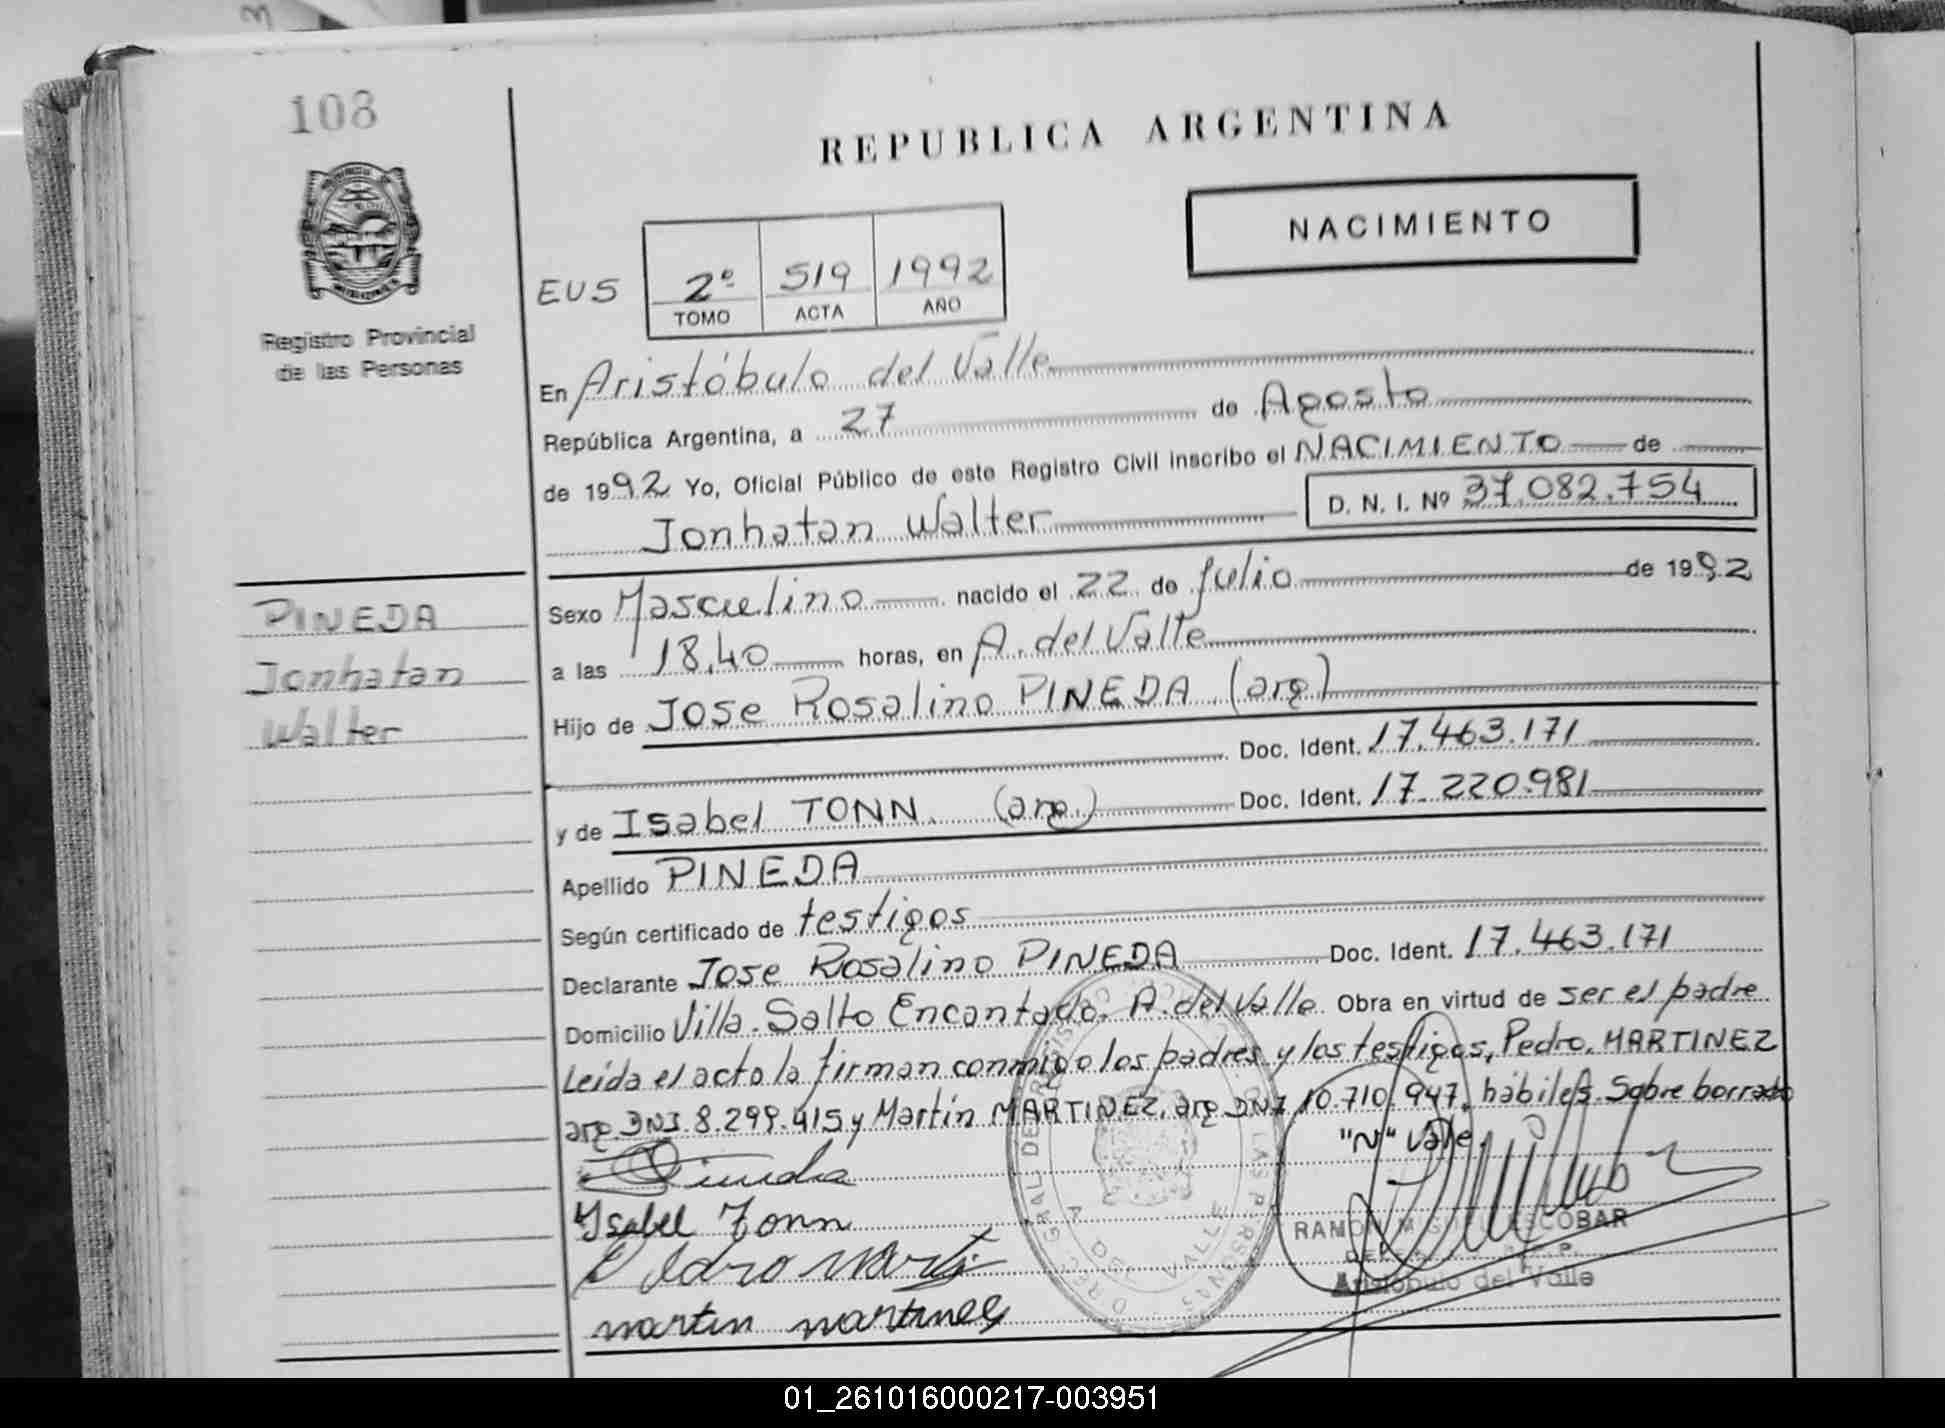 108
REPUBLICA ARGENTINA
NACIMIENTO
EUS 2º 519 1992
TOMO ACTA AÑO
Registro Provincial
de las Personas
En Aristóbulo del Valle
República Argentina, a 27 de Agosto
de 1992 Yo, Oficial Público de este Registro Civil inscribo el NACIMIENTO de
Jonhatan Walter D. N. I. Nº 37.082.754
PINEDA
Jonhatan
Walter
Sexo Masculino nacido el 22 de Julio de 1992
a las 18.40 horas, en A. del Valle
Hijo de Jose Rosalino PINEDA (arg)
Doc. Ident. 17.463.171
y de Isabel TONN (arg.) Doc. Ident. 17.220.981
Apellido PINEDA
Según certificado de testigos
Declarante Jose Rosalino PINEDA Doc. Ident. 17.463.171
Domicilio Villa Salto Encantado. A. del Valle Obra en virtud de ser el padre
Leída el acta la firman conmigo los padres y los testigos, Pedro MARTINEZ
arg. DNI 8.299.415 y Martín MARTINEZ, arg DNI 10.710.947. hábiles. Sobre borrado
"N" Vale.
Pineda
Isabel Tonn
Pedro Marti
martin martines
RAMON MIGUEL ESCOBAR
Aristóbulo del Valle
01_261016000217-003951